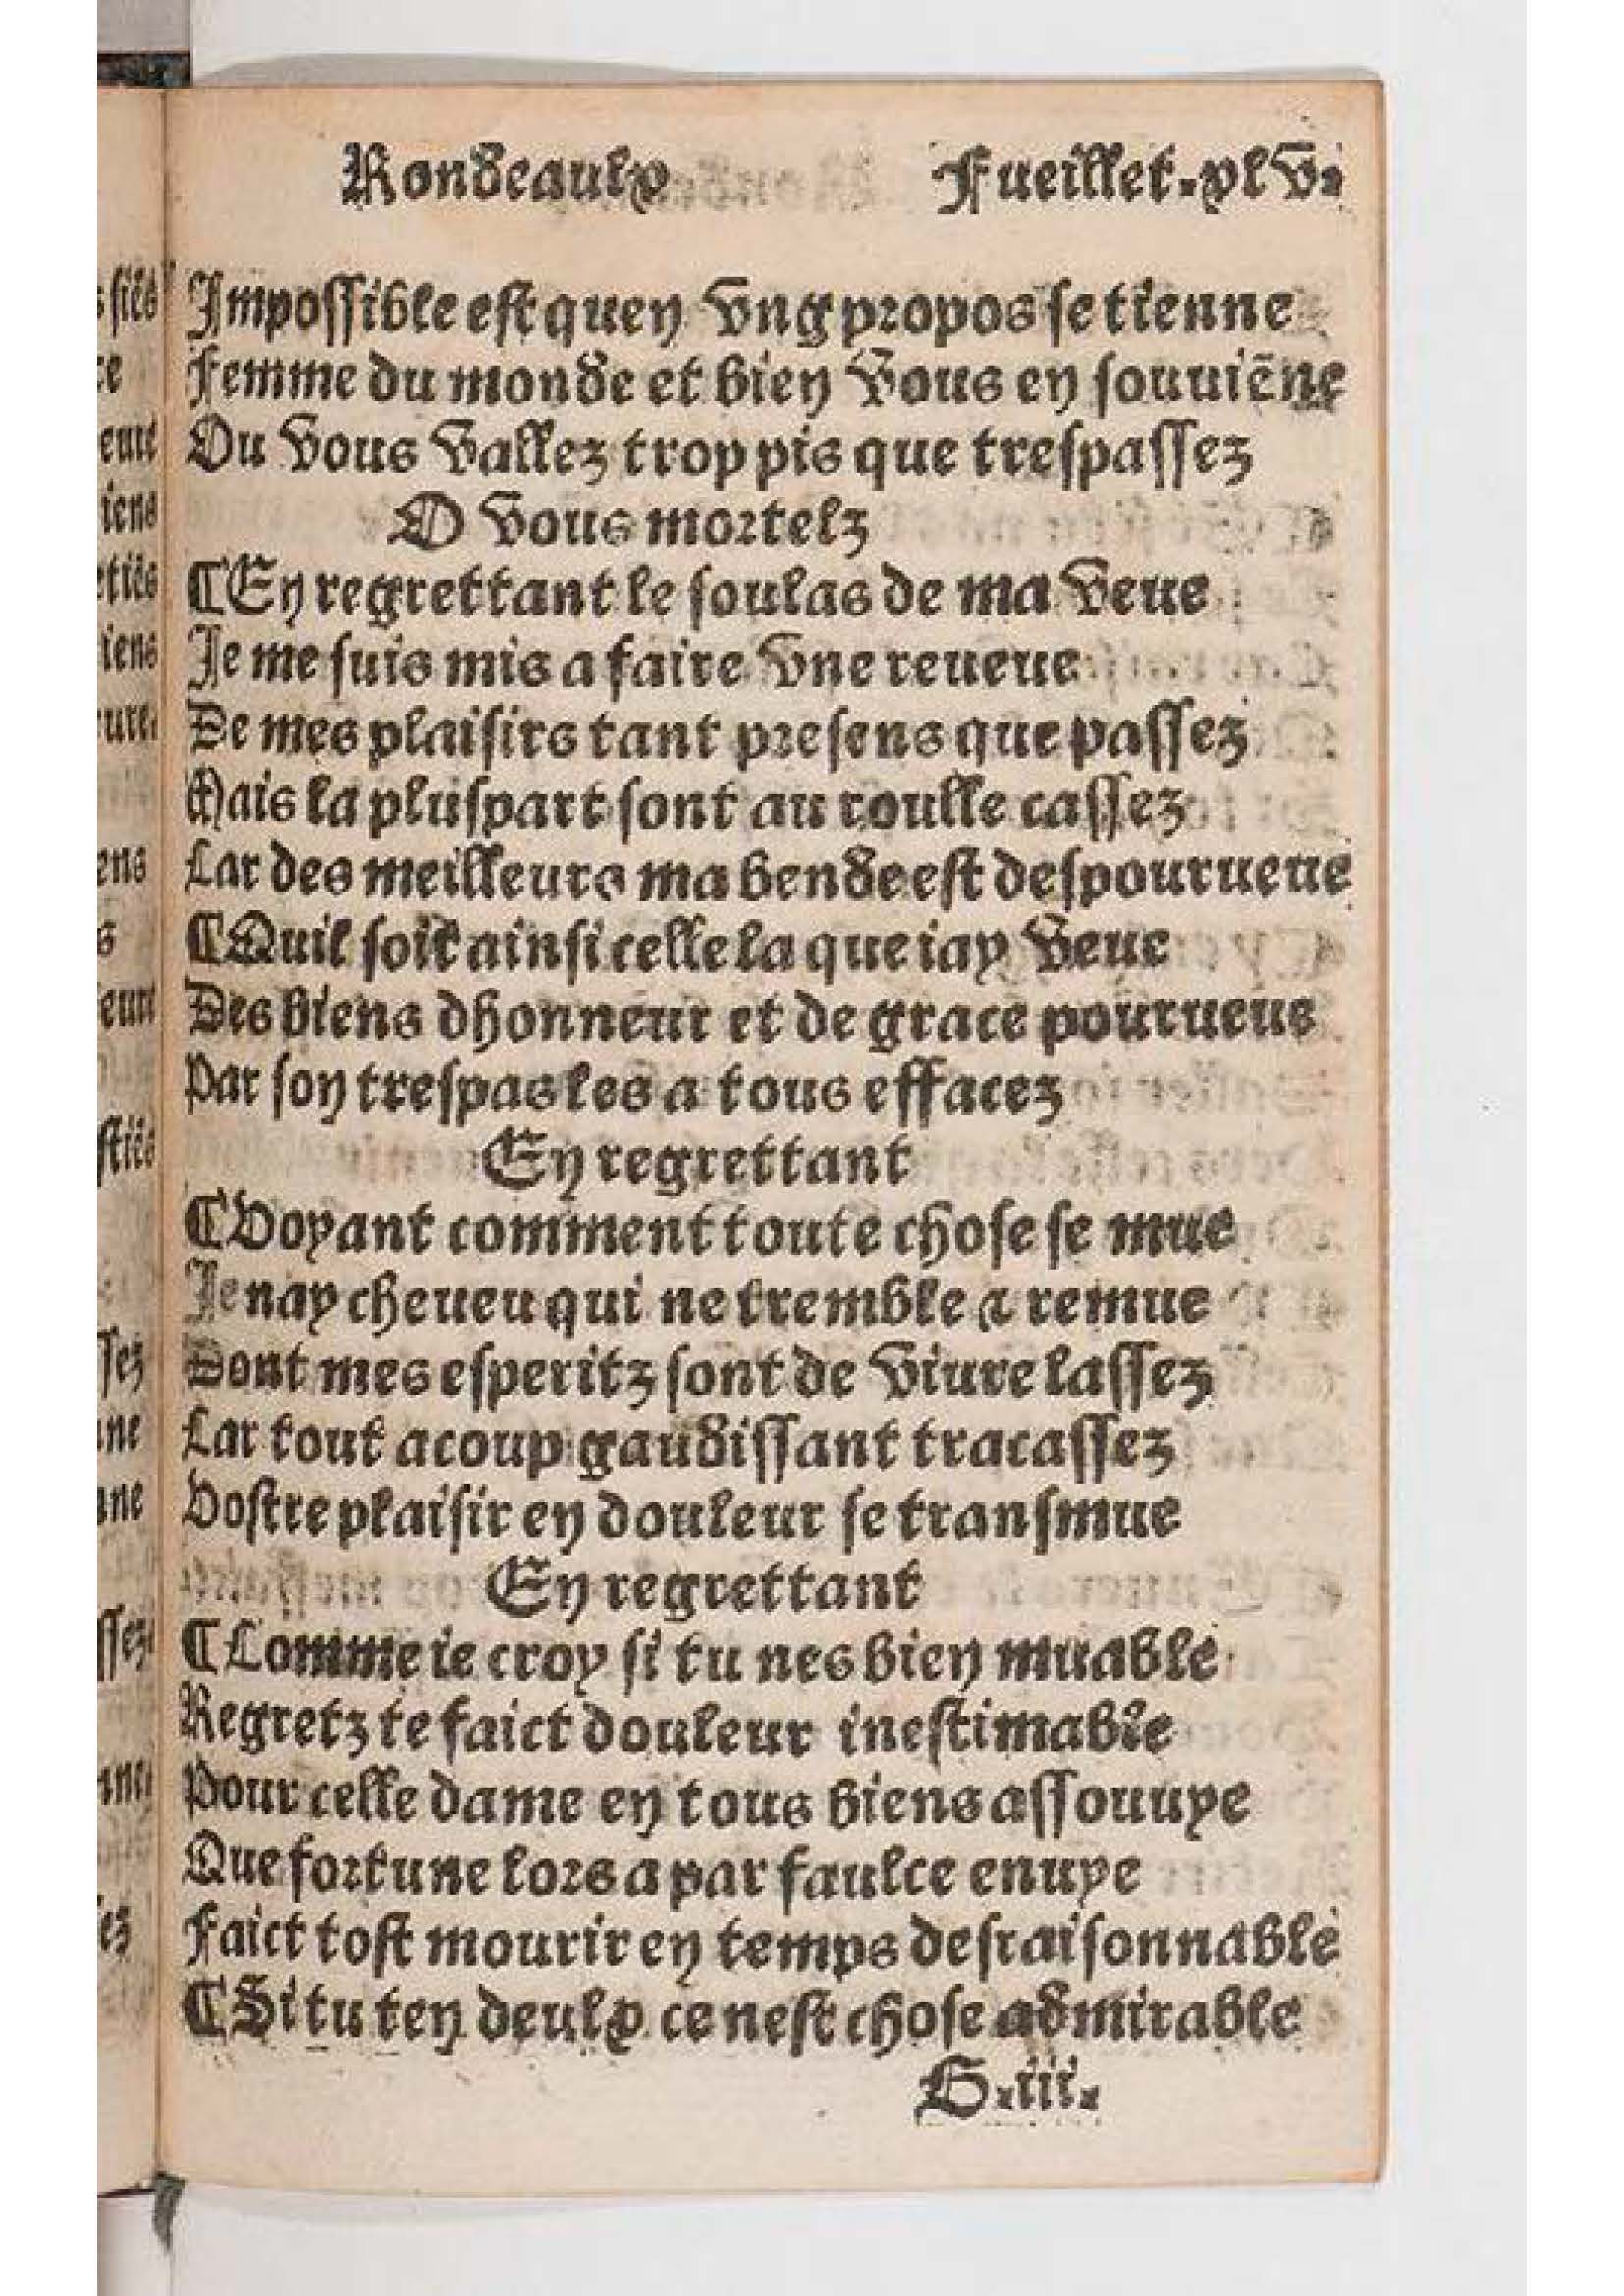 Rondeaulx Fueillet.xlv.
Impossible est quen vng propos se tienne
Femme du monde et bien vous en souuiēne
Ou vous vallez trop pis que trespassez
O vous mortelz
¶En regrettant le soulas de ma veue
Je me suis mis a faire vne reueue
De mes plaisirs tant presens que passez
Mais la pluspart sont au roulle cassez
Car des meilleurs ma bende est despourueue
¶Quil soit ainsi celle la que iay veue
Des biens dhonneur et de grace pourueue
Par son trespas les a tous effacez
En regrettant
¶Voyant comment toute chose se mue
Je nay cheueu qui ne tremble & remue
Dont mes esperitz sont de viure lassez
Car tout acoup gaudissant tracassez
Vostre plaisir en douleur se transmue
En regrettant
¶Comme ie croy si tu nes bien muable
Regretz te faict douleur inestimable
Pour celle dame en tous biens assouuye
Que fortune lors a par faulce enuye
Faict tost mourir en temps desraisonnable
¶Si tu ten deulx ce nest chose admirable
G.iii.